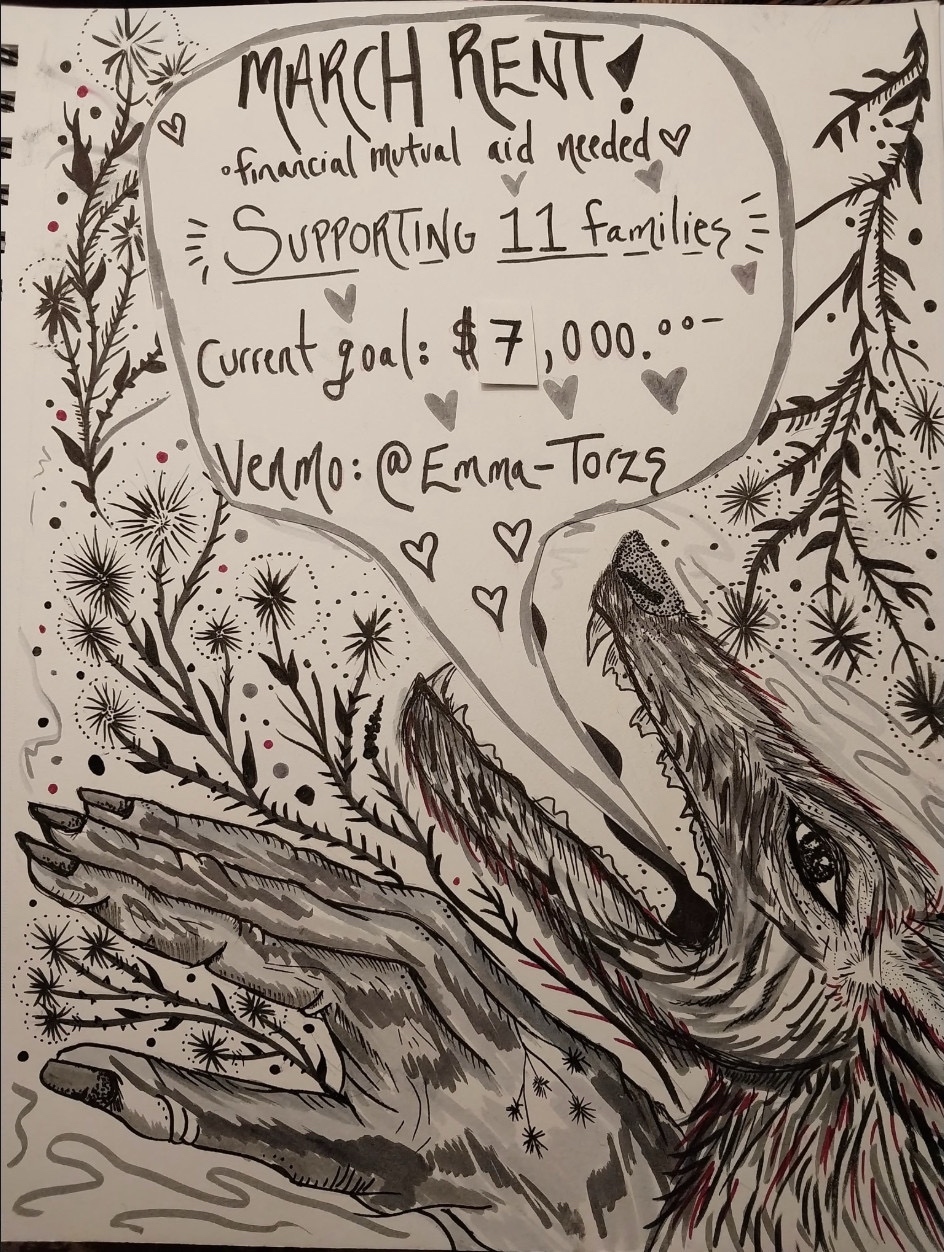 MARCH RENT!
financial mutual aid needed
SUPPORTING 11 families
Current goal: $7,000.00
Venmo: @Emma-Torzs